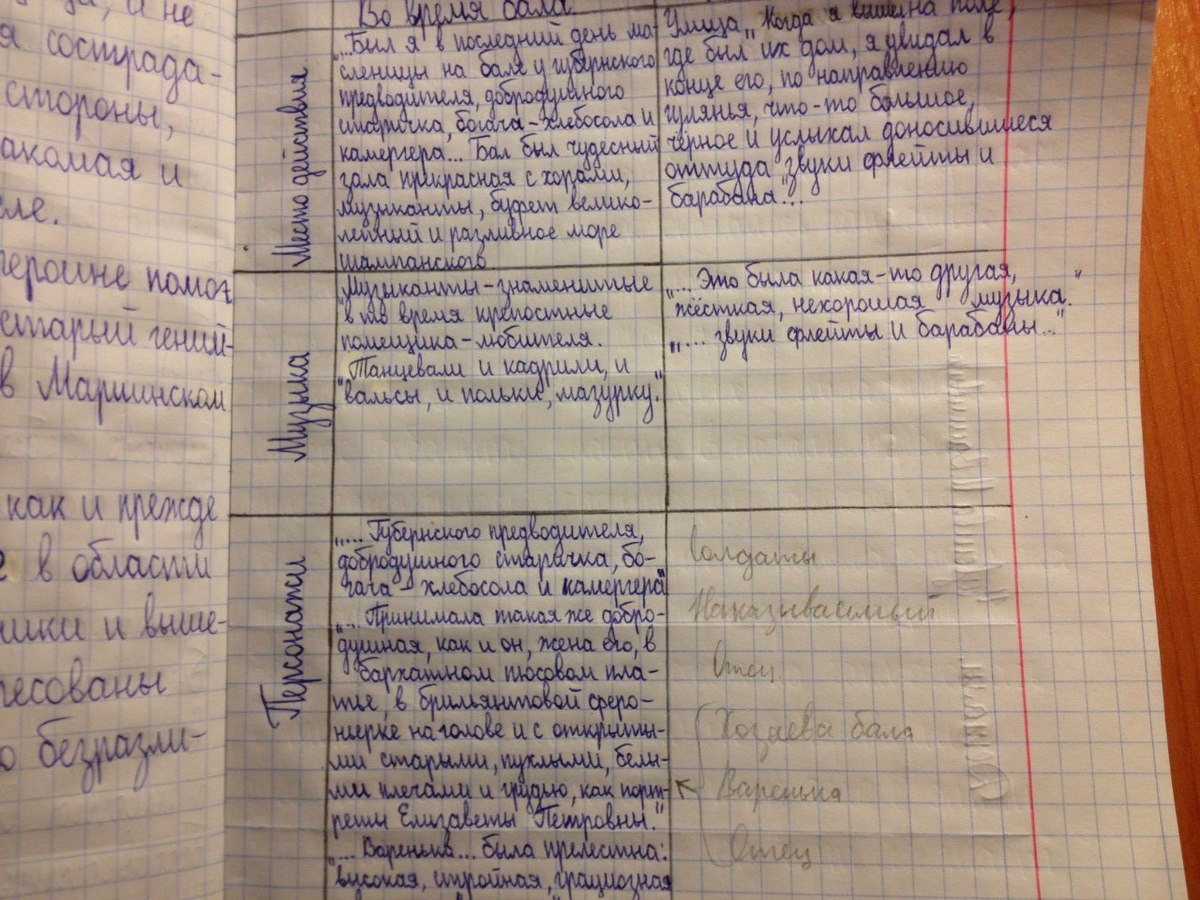 и не
я сострада-
стороны,
акомая и
еле.
героине помог
старый гений-
в Мариинском
как и прежде
е в области
ники и выше-
ресованы
о безразли-
Во время бала.
Место действия
"...Был я в последний день ма-
сленицы на бале у губернского
предводителя, добродушного
старичка, богача-хлебосола и
камергера... Бал был чудесный
зала прекрасная с хорами,
музыканты, буфет велико-
лепный и разливное море
шампанского.
Улица „Когда я вышел на поле,
где был их дом, я увидал в
конце его, по направлению
гулянья, что-то большое,
чёрное и услыхал доносившиеся
оттуда звуки флейты и
барабана"...
Музыка
"Музыканты-знаменитые
в то время крепостные
помещика-любителя.
"Танцевали и кадрили, и
вальсы, и польки, мазурку."
„... Это была какая-то другая,
жёсткая, нехорошая музыка."
„... звуки флейты и барабаны..."
Персонажи
„... Губернского предводителя,
добродушного старичка, бо-
гача-хлебосола и камергера"
„... Принимала такая же добро-
душная, как и он, жена его, в
бархатном пюсовом пла-
тье, в брильянтовой феро-
ньерке на голове и с открыты-
ми старыми, пухлыми, белы-
ми плечами и грудью, как порт-
реты Елизаветы Петровны."
"... Варенька... была прелестна:
высокая, стройная, грациозная
Солдаты
Наказываемый
Отец
Хозяева бала
Варенька
Отец